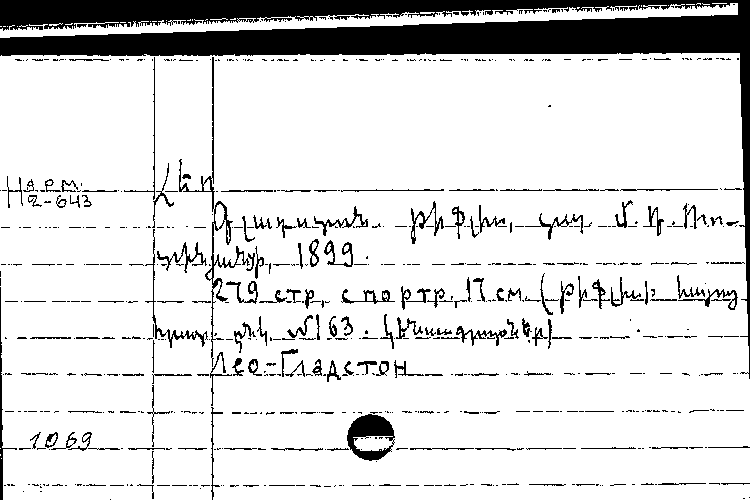 Н арм.
2-643
Լեո
Գլադստոն. Թիֆլիս, տպ. Մ. Դ. Ռոտինյանցի, 1899.
279 стр., с портр., 17 см. (Թիֆլիսի հայոց
հրատ. ընկ. №163. Կենսագրություններ)
Лео-Гладстон
1069